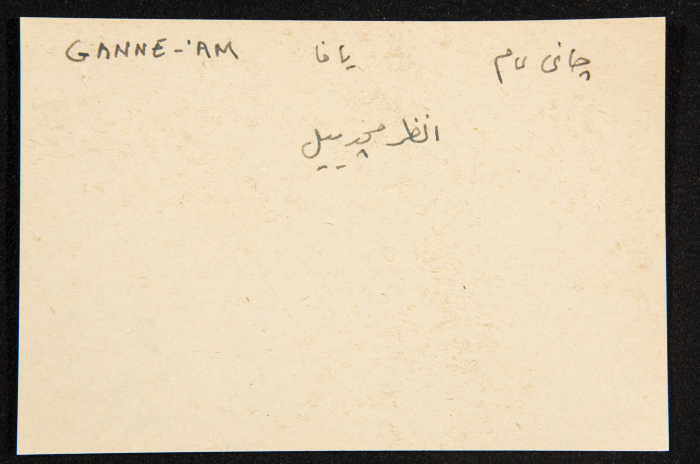 GANNE-'AM يافا چاني عام
انظر مجدييل